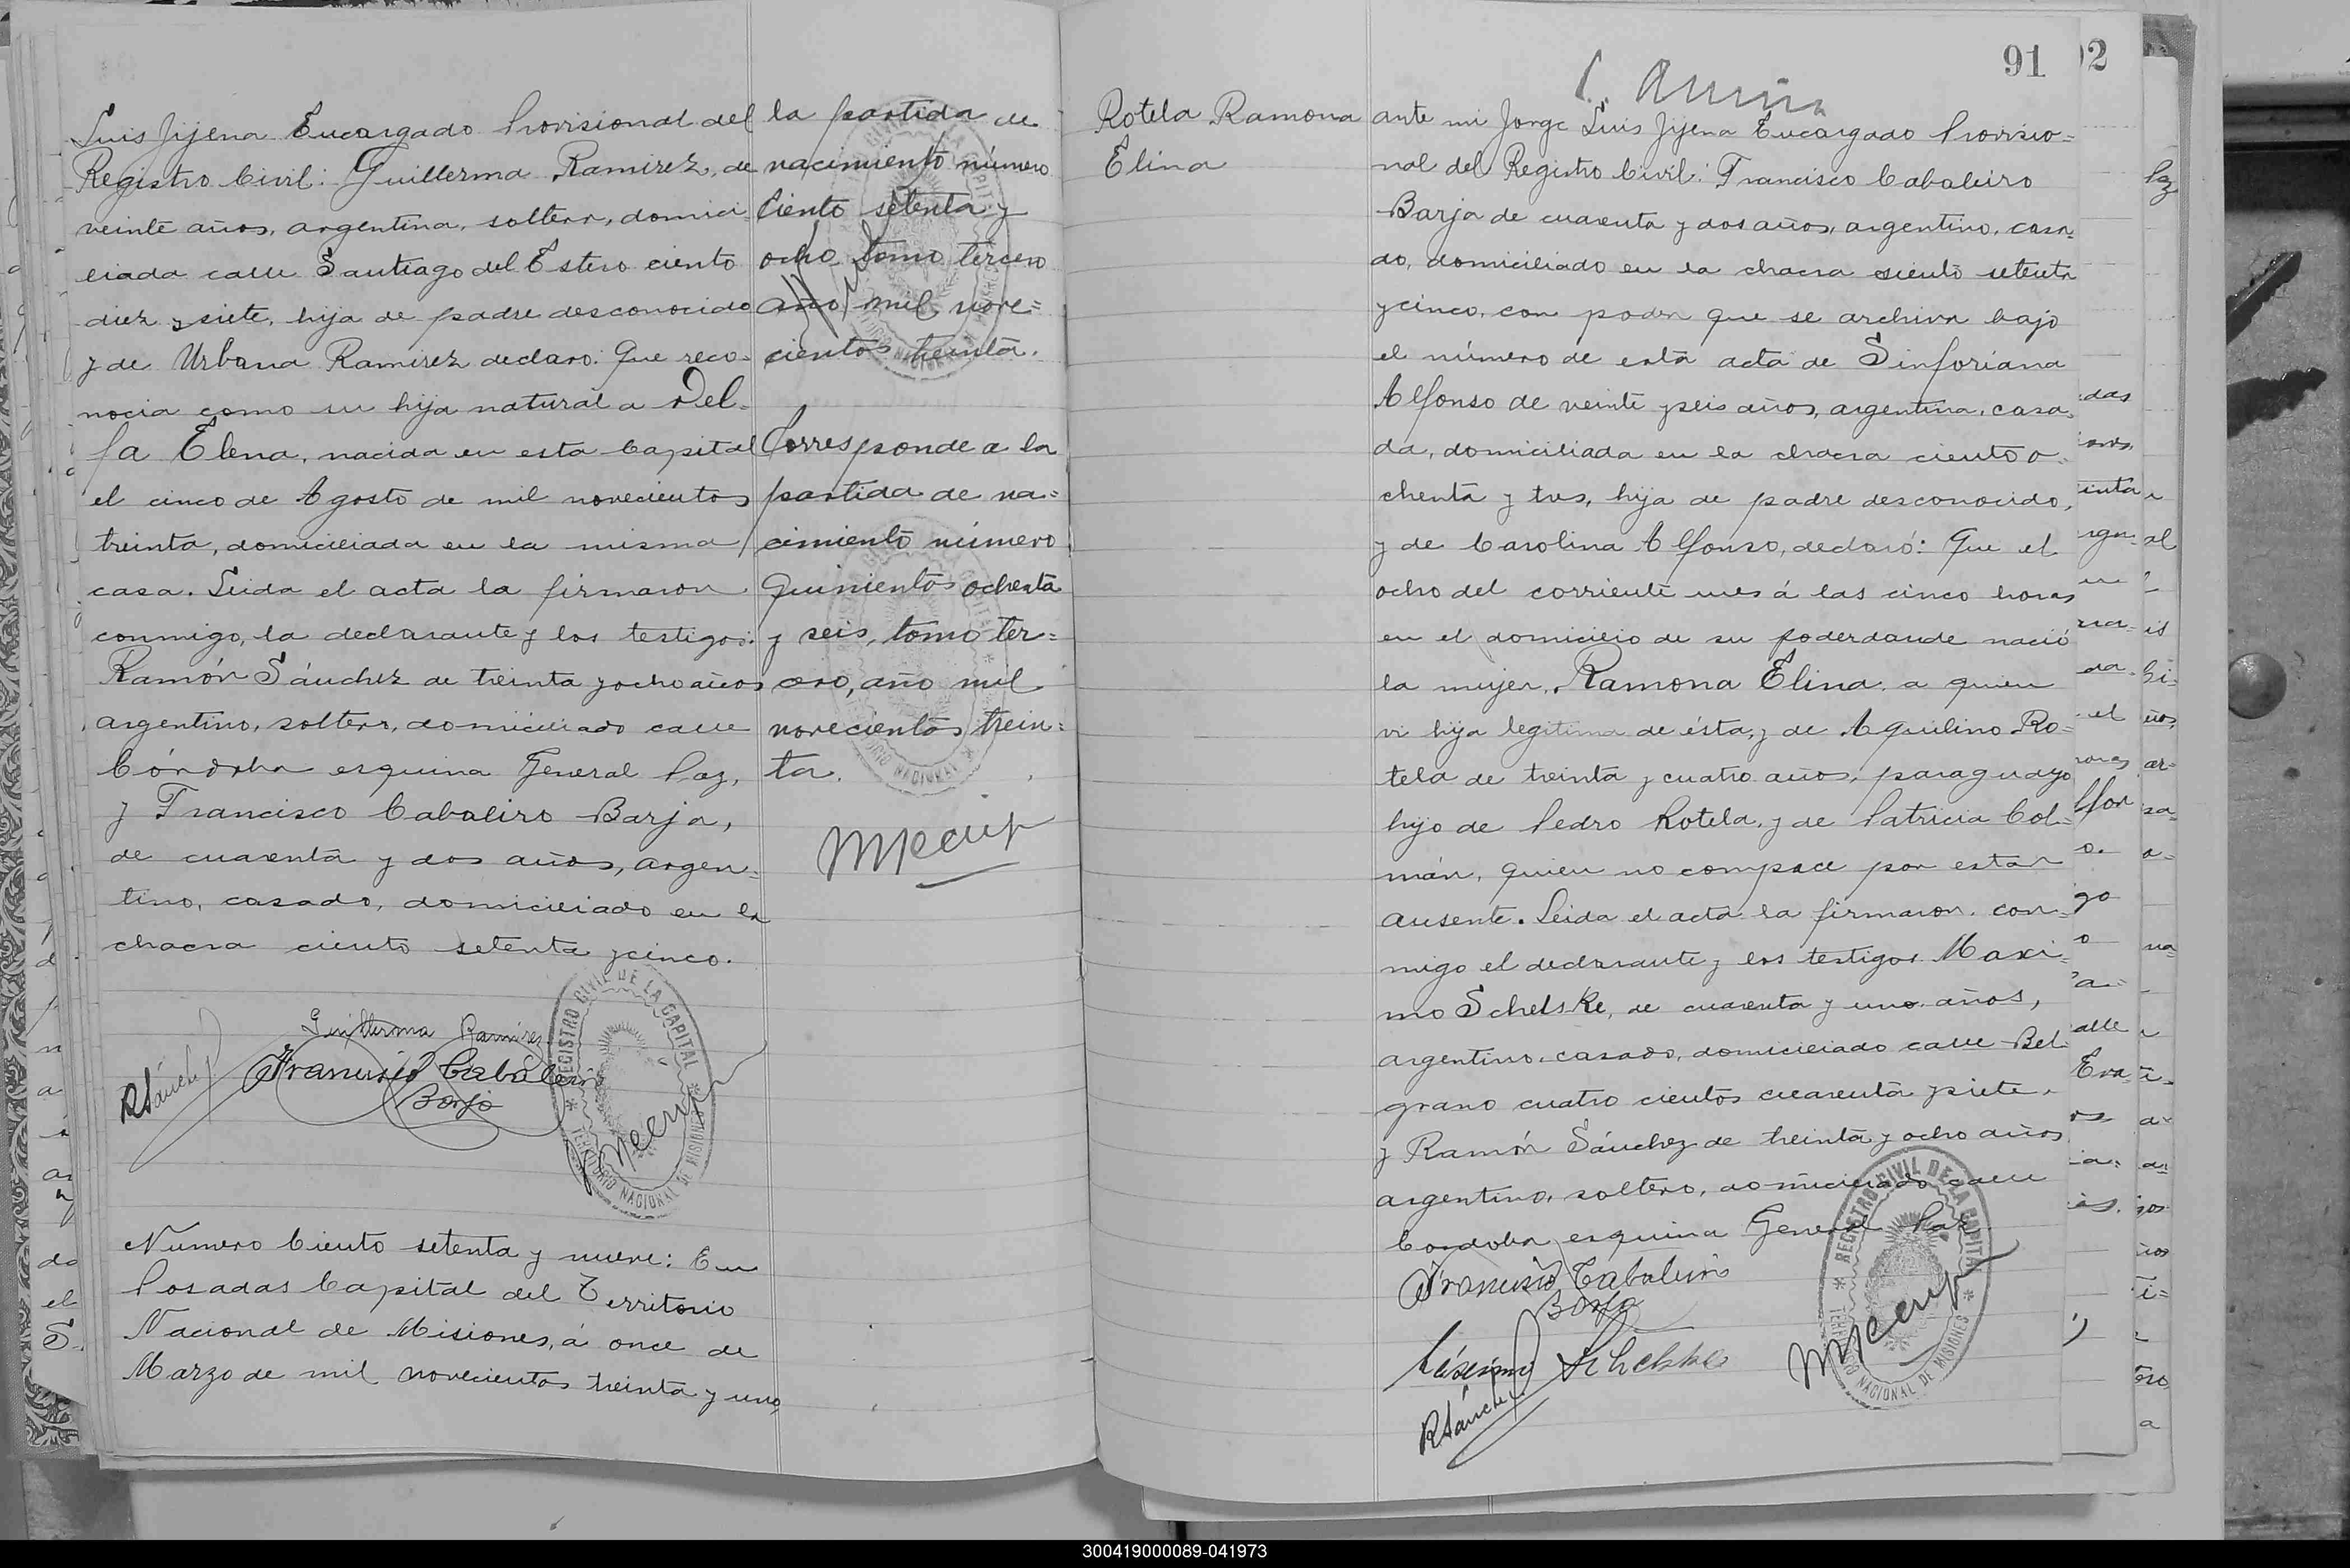 Luis Jijena Encargado Provisional del
Registro Civil: Guillerma Ramirez, de
veinte años, argentina, soltera, domici
liada calle Santiago del Estero ciento
diez y siete, hija de padre desconocido
y de Urbana Ramirez declaro: Que reco-
nocia como su hija natural a Del-
fa Elena, nacida en esta Capital
el cinco de Agosto de mil novecientos
treinta, domiciliada en la misma
casa. Leida el acta la firmaron
conmigo, la declarante y los testigos:
Ramón Sánchez de treinta y ocho años
argentino, soltero, domiciliado calle
Córdoba esquina General Paz,
y Francisco Cabaleiro Barja,
de cuarenta y dos años, argen=
tino, casado, domiciliado en la
chacra ciento setenta y cinco.
Guillerma Ramirez
Francisco Cabaleiro
Barja
RSánchez
REGISTRO CIVIL DE LA CAPITAL
TERRITORIO NACIONAL DE MISIONES
Numero Ciento setenta y nueve: En
Posadas Capital del Territorio
Nacional de Misiones, á once de
Marzo de mil novecientos treinta y uno,
la partida de
nacimiento número
Ciento setenta y
ocho tomo tercero
año mil nove=
cientos treinta.
Corresponde a la
partida de na=
cimiento número
quinientos ochenta
y seis, tomo ter=
cero, año mil
novecientos trein=
ta.
91
92
Rotela Ramona
Elina
ante mi Jorge Luis Jijena Encargado Provisio=
nal del Registro Civil: Francisco Cabaleiro
Barja de cuarenta y dos años, argentino, casa=
do, domiciliado en la chacra ciento setenta
y cinco, con poder que se archiva bajo
el número de esta acta de Sinforiana
Alfonso de veinte y seis años, argentina, casa=
da, domiciliada en la chacra ciento o=
chenta y tres, hija de padre desconocido,
y de Carolina Alfonso, declaró: Que el
ocho del corriente mes á las cinco horas
en el domicilio de su poderdande nació
la mujer, Ramona Elina, a quien
vi hija legitima de ésta, y de Aquilino Ro=
tela de treinta y cuatro años, paraguayo
hijo de Pedro Rotela, y de Patricia Col=
mán, quien no compace por estar
ausente. Leida el acta la firmaron con=
migo el declarante y los testigos Maxi=
mo Schelske, de cuarenta y uno años,
argentino, casado, domiciliado calle Bel=
grano cuatro cientos cuarenta y siete,
y Ramón Sánchez de treinta y ocho años
argentino, soltero, domiciliado calle
Cordoba esquina General Paz
Francisco Cabaleiro
Barja
Máximo Schelske
RSánchez
REGISTRO CIVIL DE LA CAPITAL
TERRITORIO NACIONAL DE MISIONES
300419000089-041973